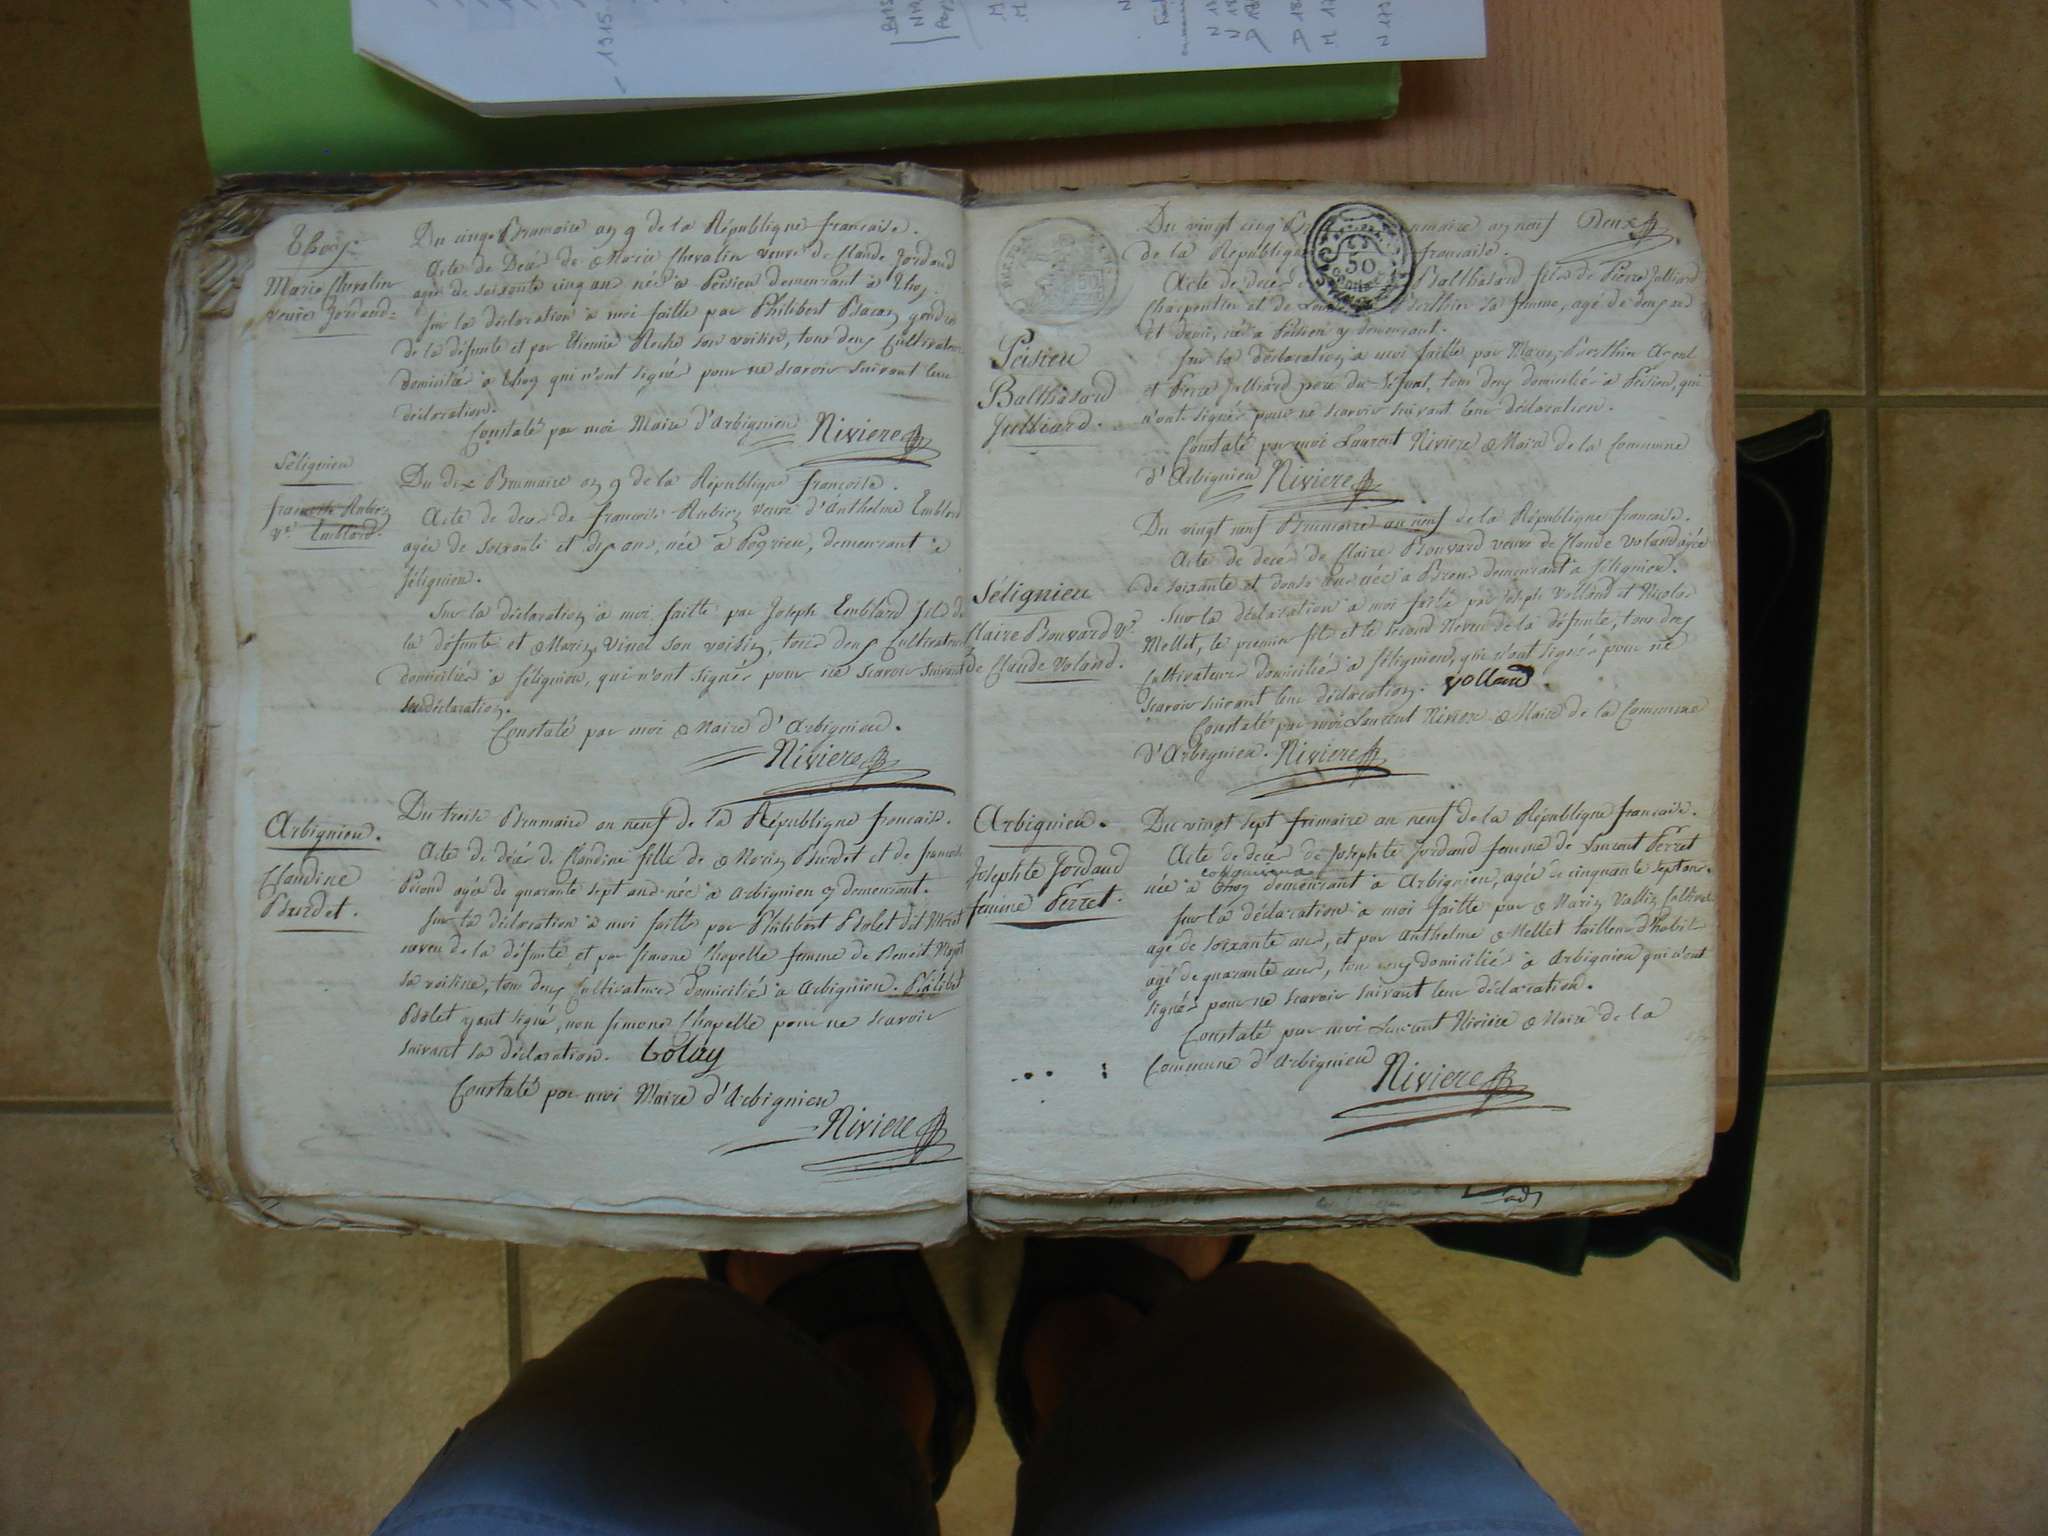 1915
Thoÿs.
Marie Chevalin
veuve Jordand
Du cinq Brumaire an 9 de la République française.
Acte de Décés de Marie Chevalin veuve de Claude Jordand
agée de soixante cinq ans née à Peisieu demeurant à Thoy.
Sur la déclaration à moi faitte par Philibert gendre
de la défunte et par Etienne Roche son voisin, tous deux Cultivateurs
domiciliés à Thoy qui n'ont signé pour ne scavoir suivant leur
déclaration.
Constaté par moi Maire d'Arbignieu Riviere
Sélignieu
françoise Rubier
Ve Emblard.
Du dix Brumaire an 9 de la République françoise.
Acte de decés de françoise Rubier veuve d'Anthelme Emblard
agée de soixante et dix ans, née à Pogrieu, demeurant à
Sélignieu.
Sur la déclaration à moi faitte par Joseph Emblard fils de
la défunte et Marin Vinet son voisin, tous deux Cultivateurs
domiciliés à Sélignieu, qui n'ont signés pour ne scavoir suivant
déclaration.
Constaté par moi Maire d'Arbignieu.
Riviere
Arbignieu.
Claudine
Burdet.
Du treise Brumaire an neuf de la République françaises.
Acte de décés de Claudine fille de Marin Burdet et de françoise
Pérond agée de quarante sept ans née à Arbignieu y demeurant.
Sur la déclaration à moi faitte par Philibert Bolet dit
neveu de la défunte, et par Simone Chapelle femme de Benoit
sa voisine, tous deux Cultivateurs Domiciliés à Arbignieu. Philibert
Bolet ayant signé, non Simone Chapelle pour ne scavoir
suivant sa déclaration. bolay
Constaté par moi Maire d'Arbignieu
Riviere
50
Deux
Peisieu
Balthasard
Julliard.
Du vingt cinq Brumaire an neuf
de la République française.
Acte de decés de Balthasard fils de Pierre Julliard
Charpentier et de Berthin sa femme, agé de deux ans
et demi, né à Peisieu y demeurant.
Sur la déclaration à moi faitte par Marin Berthin
et Pierre Julliard pere du défunt, tous deux domiciliés à Peisieu, qui
n'ont signés pour ne scavoir suivant leur déclaration.
Constaté par moi Laurent Riviere Maire de la Commune
d'Arbignieu Riviere
Sélignieu
Claire Bouvard Ve
de Claude Voland.
Du vingt neuf Brumaire an neuf de la République française.
Acte de decés de Claire Bouvard veuve de Claude Voland agée
de soixante et douse ans née à Brens demeurant à Sélignieu.
Sur la déclaration à moi faite par Joseph Volland et Nicolas
Mellet, le premier fils et le second Neveu de la défunte, tous deux
Cultivateurs domiciliés à Sélignieu, qui n'ont signés pour ne
scavoir suivant leur déclaration. Volland.
Constaté par moi Laurent Riviere Maire de la Commune
d'Arbignieu. Riviere
Arbignieu.
Josephte Jordand
femme Perret.
Du vingt sept frimaire an neuf de la République française.
Acte de decés de Josephte Jordand femme de Laurent Perret
née à Thoy demeurant à Arbignieu, agée de cinquante sept ans.
Sur la déclaration à moi faitte par Marin Vallin Cultivateur
agé de soixante ans, et par Anthelme Mellet tailleur d'habit
agé de quarante ans, tous deux domiciliés à Arbignieu qui n'ont
signés pour ne scavoir suivant leur déclaration.
Constaté par moi Laurent Riviere Maire de la
Commune d'Arbignieu Riviere